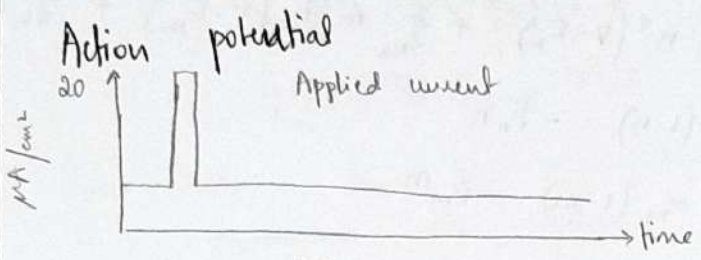 Action potential
20
Applied current
μA/cm²
time